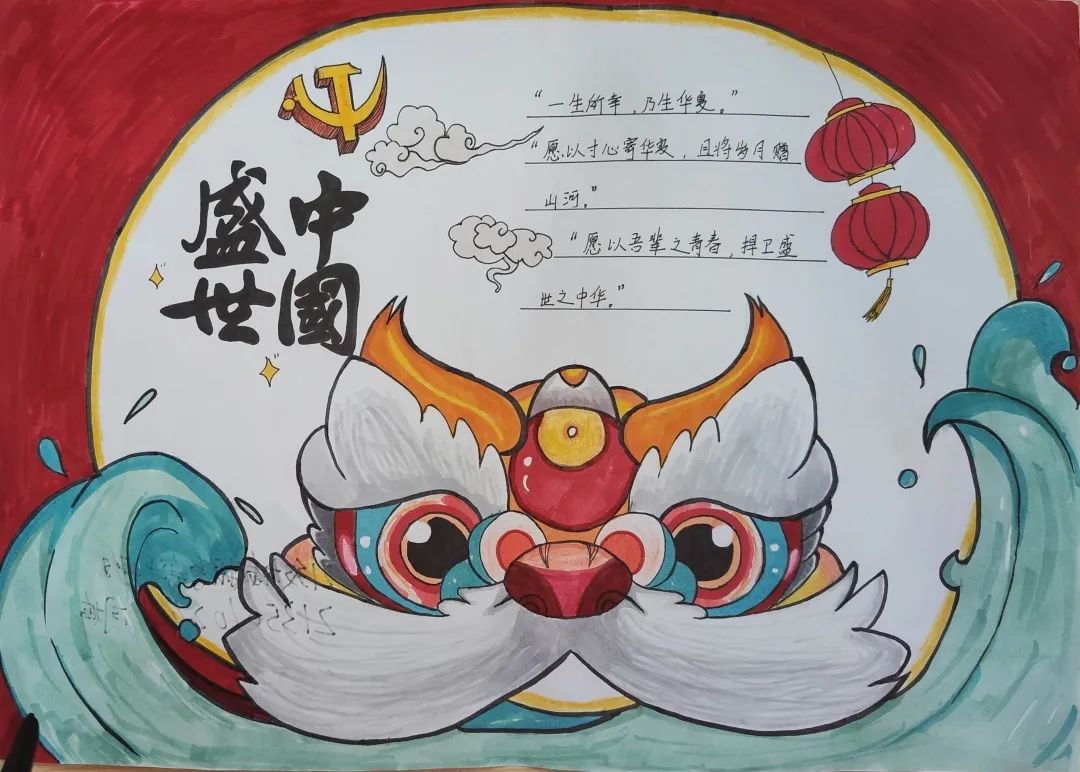 盛世中國
“一生所幸，乃生华夏。”
“愿以寸心寄华夏，且将岁月赠
山河。”
“愿以吾辈之青春，捍卫盛
世之中华。”